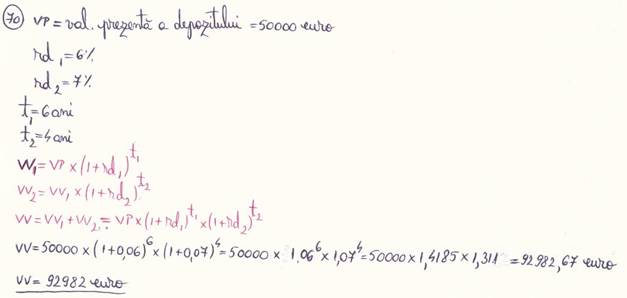 70 VP = val. prezentă a depozitului = 50000 euro
rd₁ = 6%
rd₂ = 7%
t₁ = 6 ani
t₂ = 4 ani
VV₁ = VP × (1+rd₁)^t₁
VV₂ = VV₁ × (1+rd₂)^t₂
VV = VV₁ + VV₂ = VP × (1+rd₁)^t₁ × (1+rd₂)^t₂
VV = 50000 × (1+0,06)^6 × (1+0,07)^4 = 50000 × 1.06^6 × 1,07^4 = 50000 × 1,4185 × 1,311 = 92982,67 euro
VV = 92982 euro